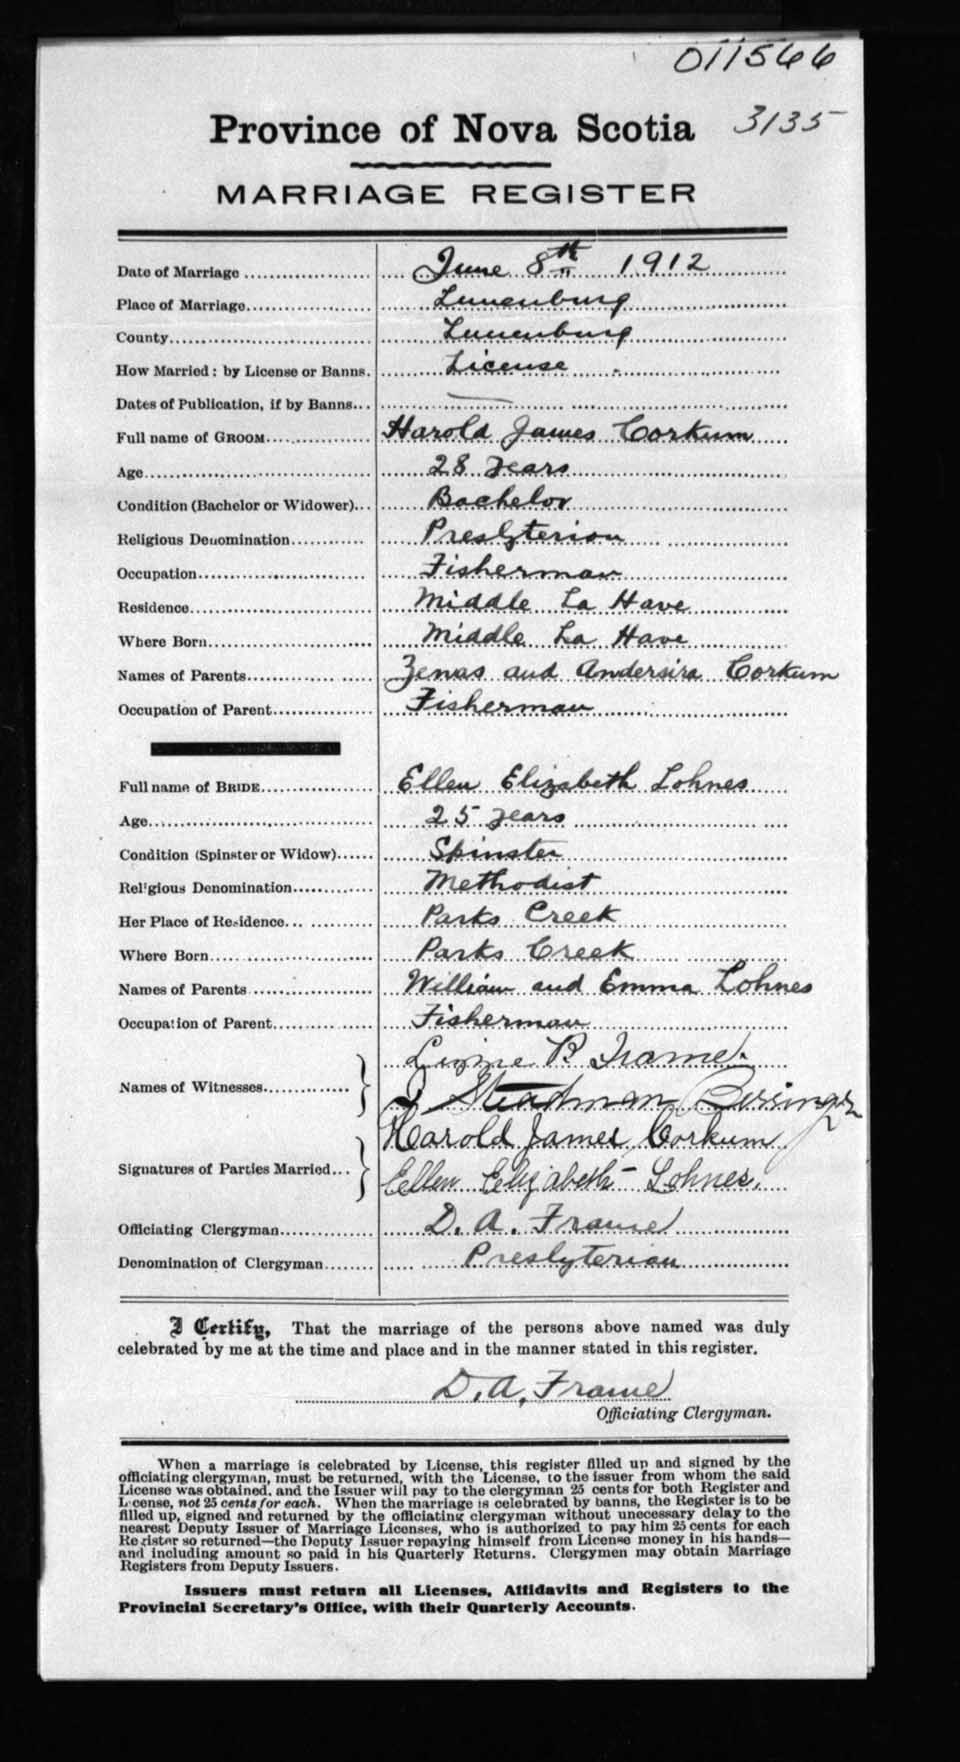 011566
Province of Nova Scotia 3135
MARRIAGE REGISTER
Date of Marriage June 8th 1912
Place of Marriage Lunenburg
County Lunenburg
How Married: by License or Banns. License
Dates of Publication, if by Banns
Full name of GROOM Harold James Corkum
Age 28 years
Condition (Bachelor or Widower) Bachelor
Religious Denomination Presbyterian
Occupation Fisherman
Residence Middle La Have
Where Born Middle La Have
Names of Parents Zenas and Corkum
Occupation of Parent Fisherman
Full name of BRIDE Ellen Elizabeth Lohnes
Age 25 years
Condition (Spinster or Widow) Spinster
Religious Denomination Methodist
Her Place of Residence Parks Creek
Where Born Parks Creek
Names of Parents William and Emma Lohnes
Occupation of Parent Fisherman
Names of Witnesses B. Frame.
Steadman
Harold James Corkum
Signatures of Parties Married Ellen Elizabeth Lohnes.
Officiating Clergyman D. A. Frame
Denomination of Clergyman Presbyterian
I Certify, That the marriage of the persons above named was duly
celebrated by me at the time and place and in the manner stated in this register.
D. A. Frame
Officiating Clergyman.
When a marriage is celebrated by License, this register filled up and signed by the
officiating clergyman, must be returned, with the License, to the issuer from whom the said
License was obtained, and the Issuer will pay to the clergyman 25 cents for both Register and
License, not 25 cents for each. When the marriage is celebrated by banns, the Register is to be
filled up, signed and returned by the officiating clergyman without unnecessary delay to the
nearest Deputy Issuer of Marriage Licenses, who is authorized to pay him 25 cents for each
Register so returned—the Deputy Issuer repaying himself from License money in his hands—
and including amount so paid in his Quarterly Returns. Clergymen may obtain Marriage
Registers from Deputy Issuers.
Issuers must return all Licenses, Affidavits and Registers to the
Provincial Secretary's Office, with their Quarterly Accounts.